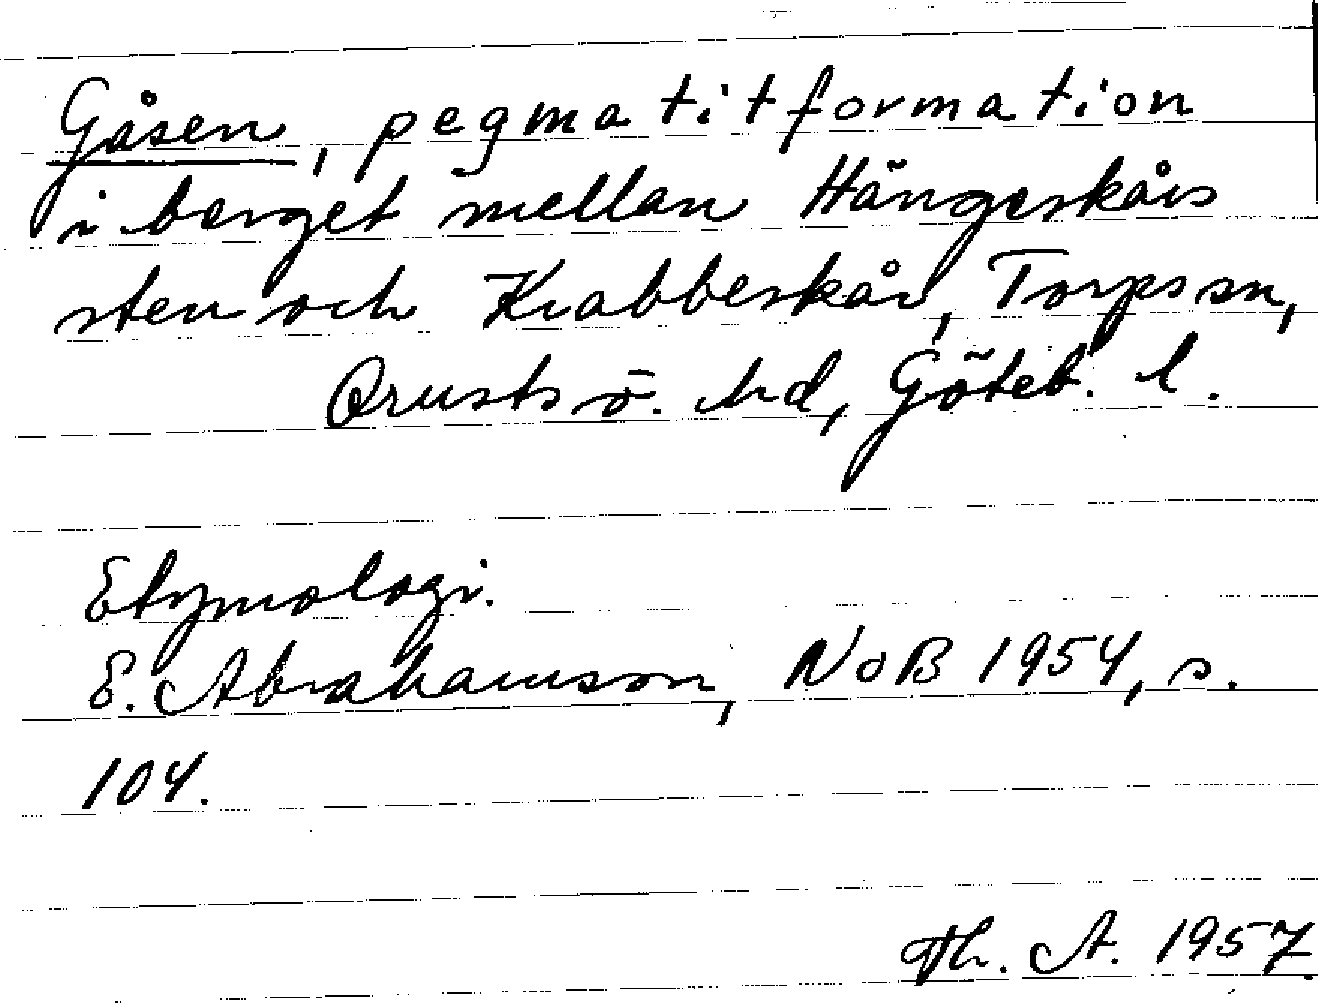 Gåsen, pegmatitformation
i berget mellan Hängerskårs
sten och Krabberskår, Torps sn,
Orusts ö. hd, Göteb. l.
Etymologi.
E. Abrahamson, NoB 1954, s.
104.
Th. A. 1957